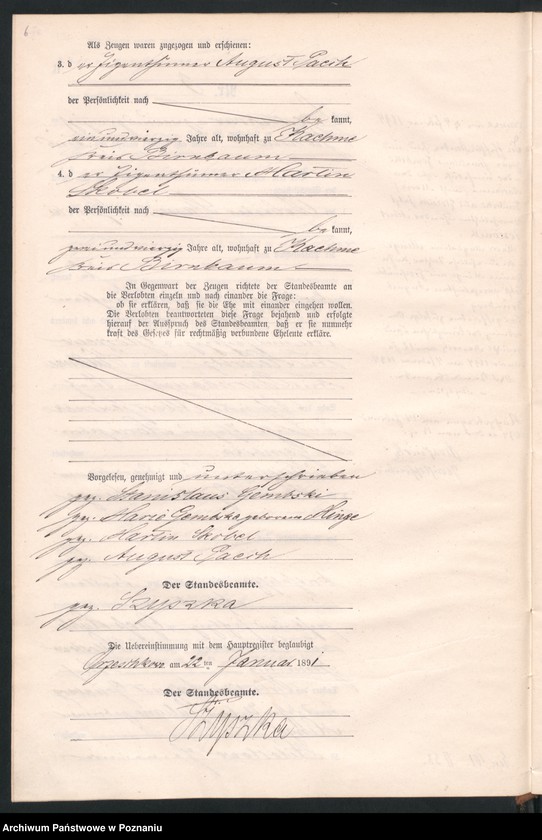 6
Als Zeugen waren zugezogen und erschienen:
3. d er Eigenthümer August Pach
der Persönlichkeit nach
be kannt,
einundvierzig Jahre alt, wohnhaft zu Kachme
Kreis Birnbaum
4. d er Eigenthümer Martin
Skobel
der Persönlichkeit nach
be kannt,
zweiundvierzig Jahre alt, wohnhaft zu Kachme
Kreis Birnbaum
In Gegenwart der Zeugen richtete der Standesbeamte an
die Verlobten einzeln und nach einander die Frage:
ob sie erklären, daß sie die Ehe mit einander eingehen wollen.
Die Verlobten beantworteten diese Frage bejahend und erfolgte
hierauf der Ausspruch des Standesbeamten, daß er sie nunmehr
kraft des Gesetzes für rechtmäßig verbundene Eheleute erkläre.
Vorgelesen, genehmigt und unterschrieben
gez. Stanislaus Gembski
gez. Marie Gembska geborene Hinze
gez. Martin Skobel
gez. August Pach
Der Standesbeamte.
gez. Szyszka
Die Uebereinstimmung mit dem Hauptregister beglaubigt
am 22 ten Januar 1891
Der Standesbeamte.
Szyszka
Archiwum Państwowe w Poznaniu